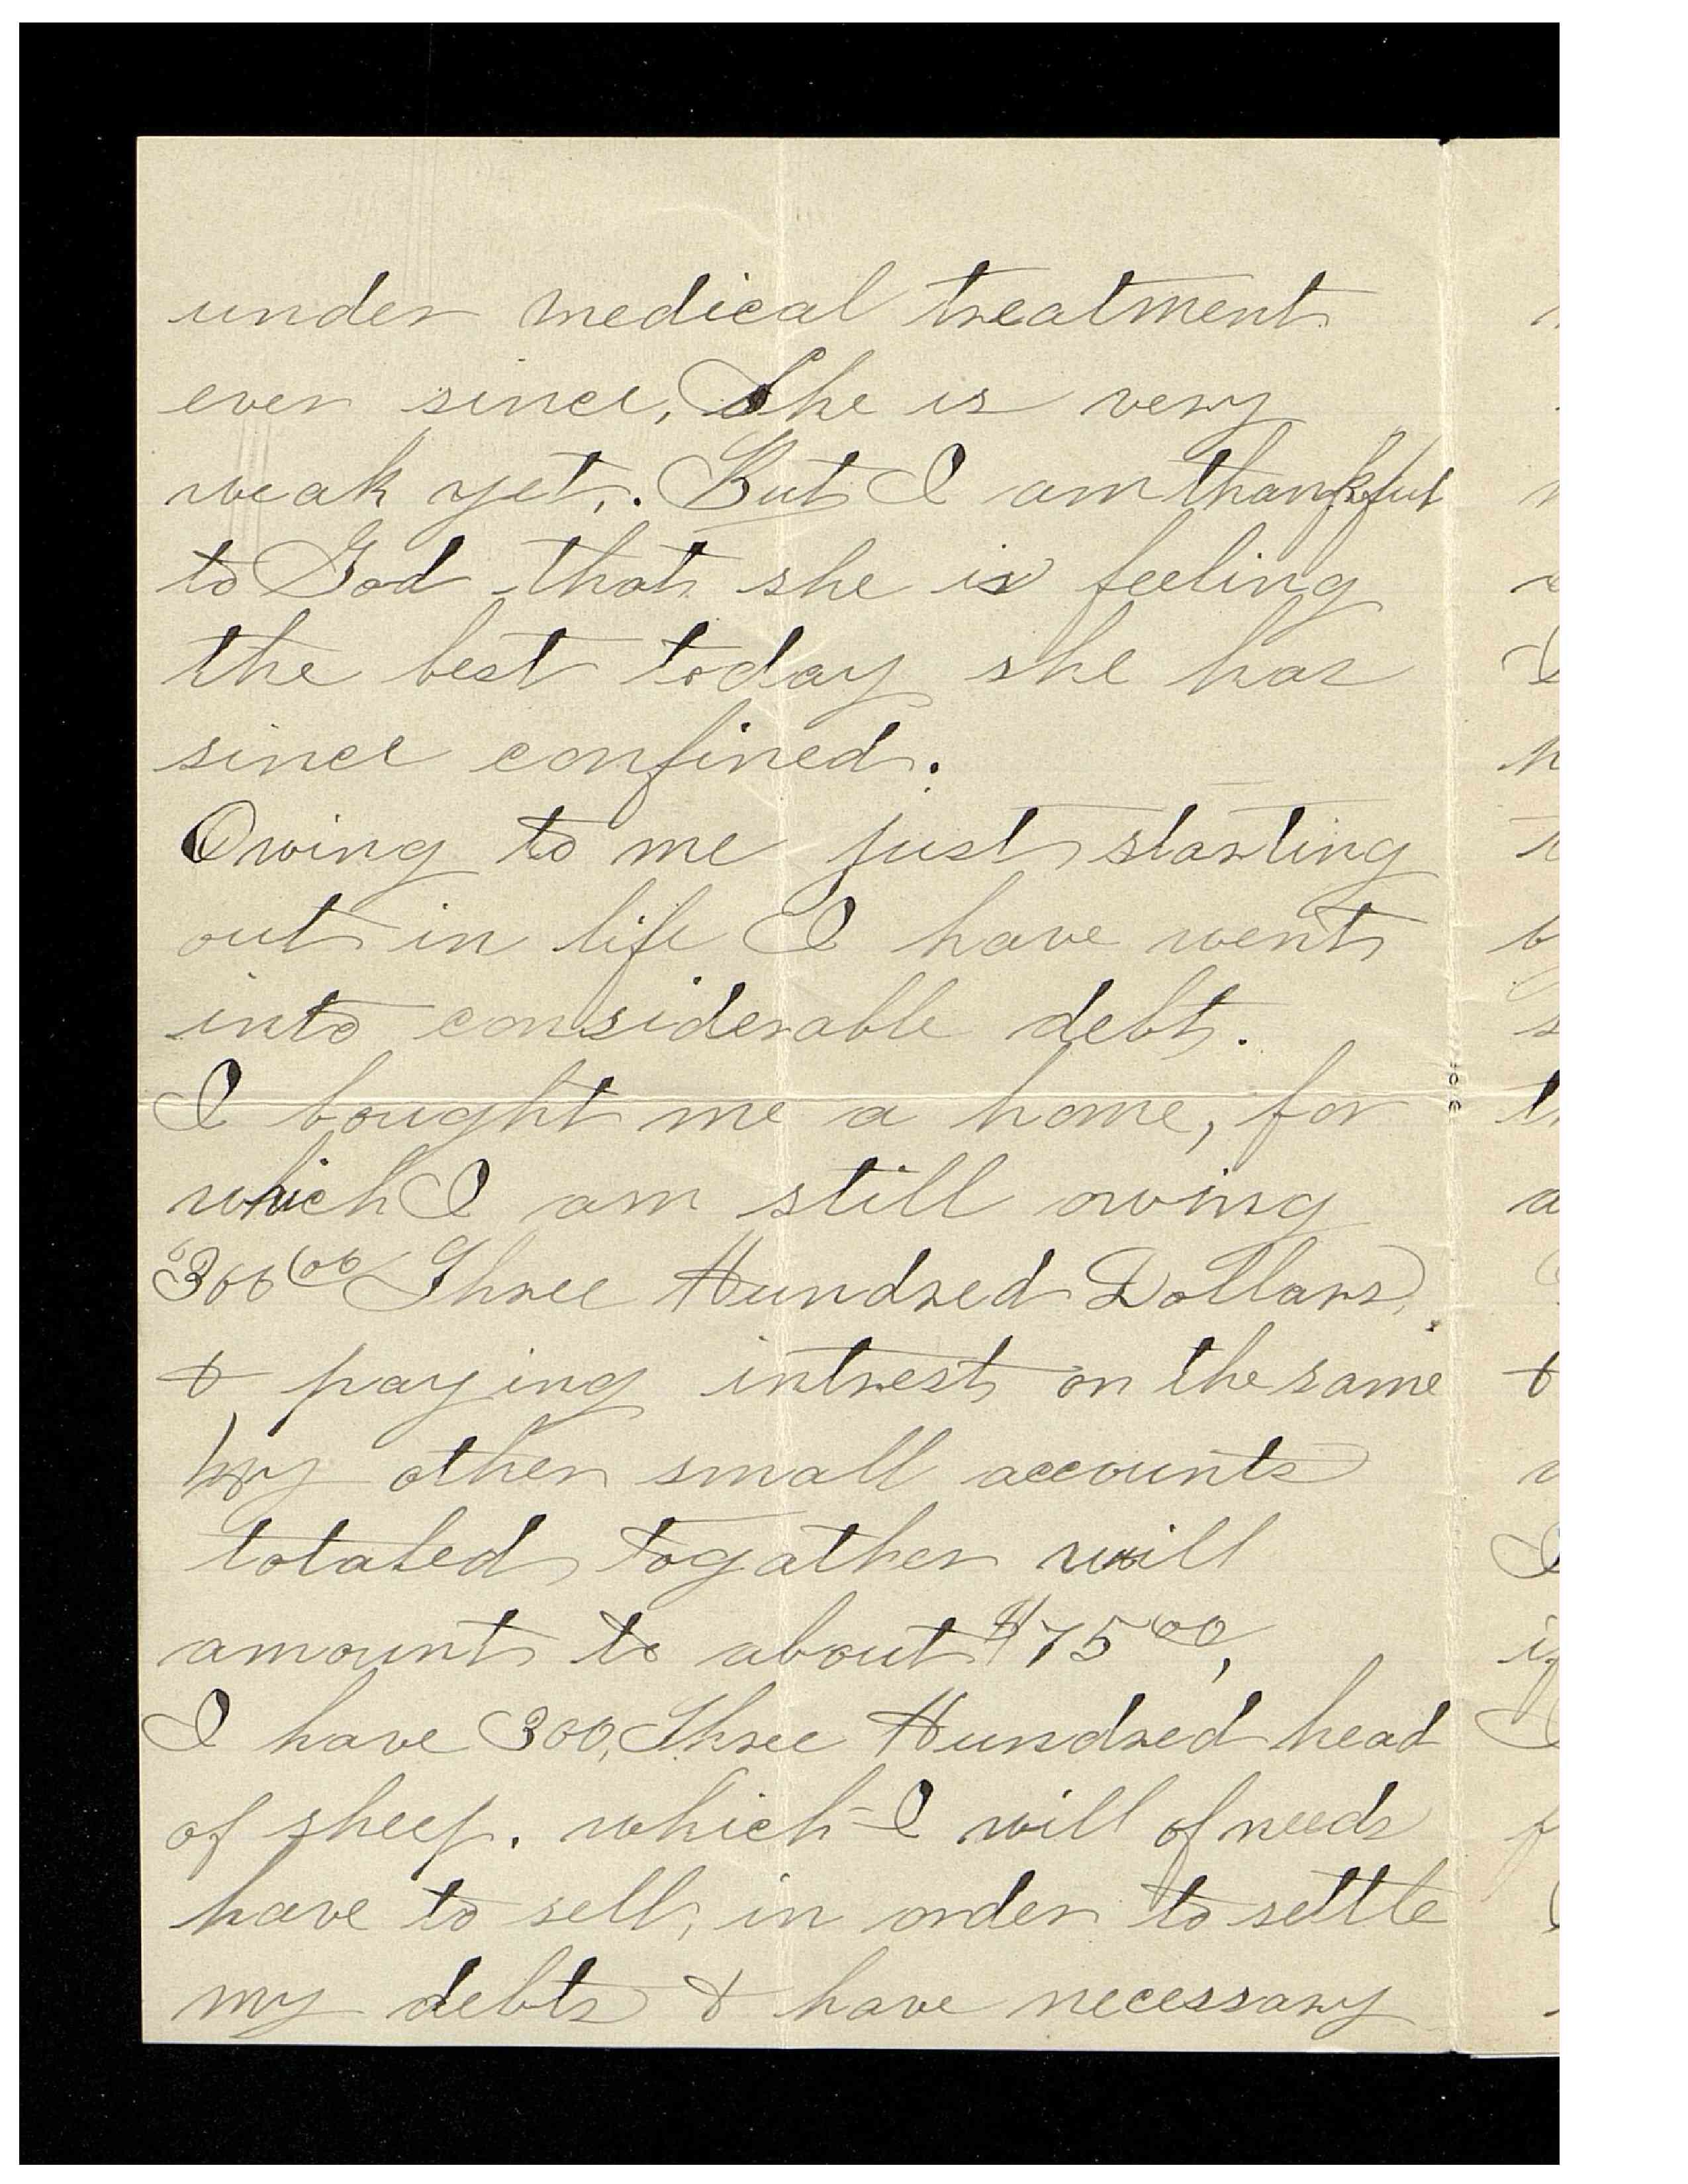 under medical treatment
ever since, She is very
weak yet,. But I am thankful
to God that she is feeling
the best today she has
since confined.
Owing to me just starting
out in life I have went
into considerable debt.
I bought me a home, for
which I am still owing
$300.00 Three Hundred Dollars,
& paying intrest on the same
My other small accounts
totaled togather will
amount to about $75.00,
I have 300, Three Hundred head
of sheep. which I will of needs
have to sell, in order to settle
my debts & have necessary